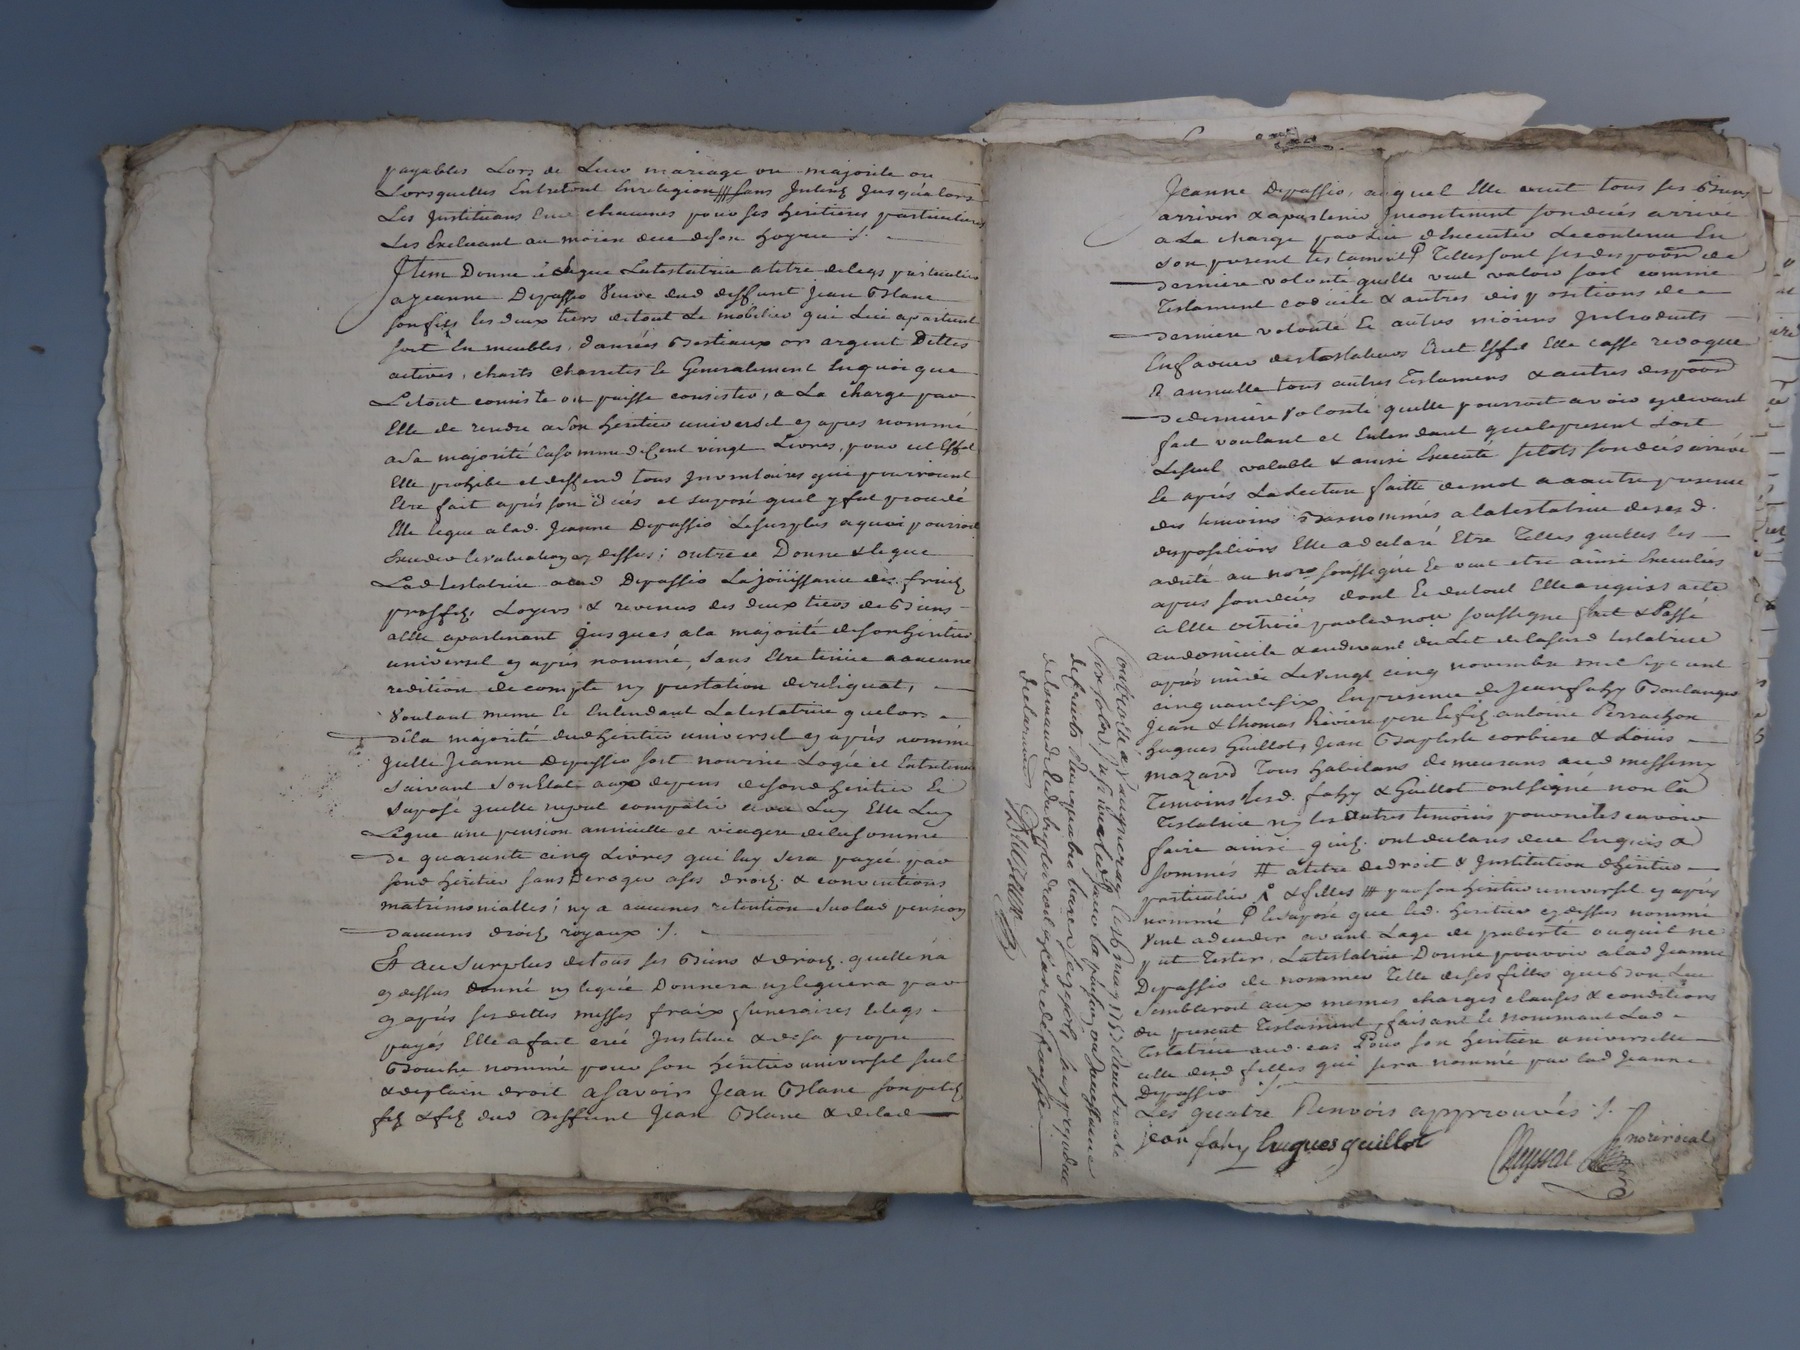 payables Lors de Leur mariage ou majorité ou
Lorsquelles Entretont Enreligion /// sans Interez Jusqualors
Les Instituans Eme chacunes pour ses heritieres particulieres
Les Excluant au moien dece deson hoyrie ./.
Item Donne & Legue Latestatrice atitre delegs particulier
a Jeanne Depassio Veuve dud deffunt Jean Blanc
son fils les deux tiers detout Le mobilier que Luy apartient
soit En meubles, danrées Bestiaux or argent Dettes
actives, charts charretes Et Generalement Enquoi que
Letout consiste ou puisse consister, a La charge par
Elle de rendre a son heritier universel cy apres nommé
a sa majorité lasomme deCent vingt Livres, pour cet Effet
Elle prohibe et deffend tous Inventaires qui pourroient
Etre fait après son décès et suposé quil y fut procedé
Elle legue a lad. Jeanne Depassio Lesurplus aquoi pourroit
Exceder levaluation cy dessus; outre ce Donne & legue
Lad testatrice a lad Depassio La joüissance des fruicz
proffiz, Loyers & revenus des deux tiers de Biens
a Elle apartenant Jusques a la majorité deson heritier
universel cy après nommé, sans Etre tenüe a aucune
redition de compte ny prestation dereliquat,
Voulant meme Et Entendant Latestatrice quelors
dela majorité dud heritier universel cy après nommé
quelle Jeanne Depassio soit nourrie Logée et Entretenue
suivant son Etat aux depens desond heritier Et
suposé quelle ne put compatir avec Luy Elle Luy
Legue une pension annüelle et viagere delasomme
de quarante cinq Livres qui luy sera payée par
sond heritier sans Deroger ases droiz & conventions
matrimonialles; ny a aucunes retention surlad pension
daucuns droiz royaux ./.
Et au surplus detous ses Biens & droiz quelle na
cy dessus donné ny legué Donnera ny leguera par
cy après ses dettes messes fraix funeraires & legs
payés Elle a fait créé Institué & de sa propre
Bouche nommé pour son heritier universel seul
& deplain droit a savoir Jean Blanc son petit
fiz & fiz dud deffunt Jean Blanc & delad
Jeanne depassio, auquel Elle veut tous ses Biens
arriver & apartenir Incontinent son decès arrivé
a La charge par Luy d'Executer Lecontenu En
son present testament Telles sont ses dispoons de
derniere volonté quelle veut valoir soit comme
Testament codicile & autres dispositions de
derniere volonté Et autres moiens Introduits
En faveur des testateurs A cet Effet Elle casse revoque
& annulle tous autres Testamens & autres dispoons
de derniere Volonté quelle pourroit avoir cy devant
fait voulant et Entendant quelepresent soit
Leseul valable & ainsi Executé sitots son decès arrivé
Et après La Lecture faitte de mot a autre presence
des temoins Basnommés a latestatrice de ses d.
dispositions Elle a declaré Etre Telles quelles les
a dicté au nore soussigné Et veut etre ainsi Executées
apres son decès dont Et du tout Elle a requis acte
a Elle octroié par led noire soussigné fait & Passé
au domicile & au devant du Lit de lasusd testatrice
après midi Le vingt cinq novembre mil sept cent
cinquante six En presence de Jean fahy Boulanger
Jean & thomas Riviere pere & fiz antoine Perrachon
hugues Guillot, Jean Baptiste corbiere & Loüis
mazard Tous habitans demeurans aud messimy
Temoins Lesd. fahy & Guillot ont signé non la
Testatrice ny les autres temoins pour ne le scavoir
faire ainsi quiz ont declaré de ce Enquis &
sommés # atitre de droit & Institution d'heritier
particulier & filles /// par son heritier universel cy après
nommé Et suposé que led. heritier cy dessus nommé
Vint a deceder avant Lage de puberté ou quil ne
put Tester, Latestatrice Donne pouvoir a lad Jeanne
Depassio de nommer Telle de ses filles que Bon Luy
Sembleroit aux memes charges clauses & conditions
du present Testament, faisant Et nommant Lad
Testatrice aud. cas Pour son heritiere universelle
celle desd filles qui sera nommée par lad Jeanne
Depassio ./.
Les quatre Renvois approuvés ./.
jean fahy hugues guillot
noire royal
Controllé a Vaugneray